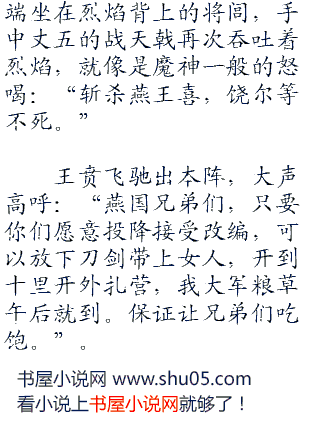 端坐在烈焰背上的将闾，手
中丈五的战天戟再次吞吐着
烈焰，就像是魔神一般的怒
喝：“斩杀燕王喜，饶尔等
不死。”
王贲飞驰出本阵，大声
高呼：“燕国兄弟们，只要
你们愿意投降接受改编，可
以放下刀剑带上女人，开到
十里开外扎营，我大军粮草
午后就到。保证让兄弟们吃
饱。”。
书屋小说网 www.shu05.com
看小说上书屋小说网就够了！